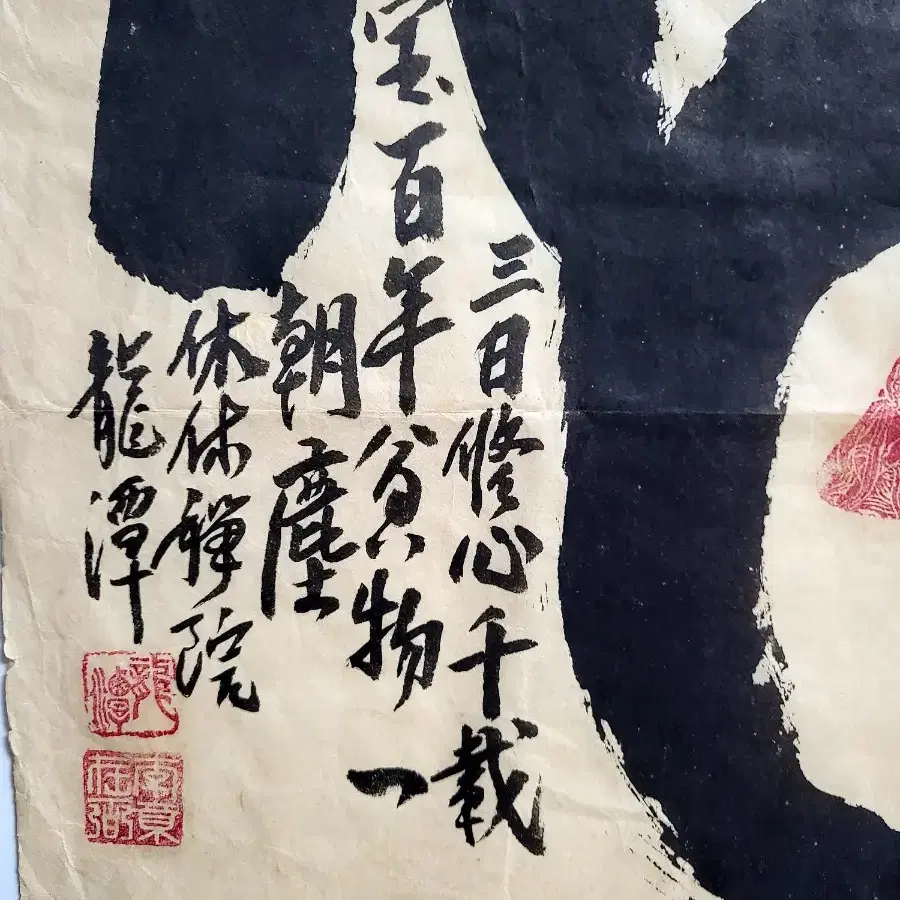 三日修心千載
宝百年貪物一
朝塵
休休禪院
龍潭
龍潭